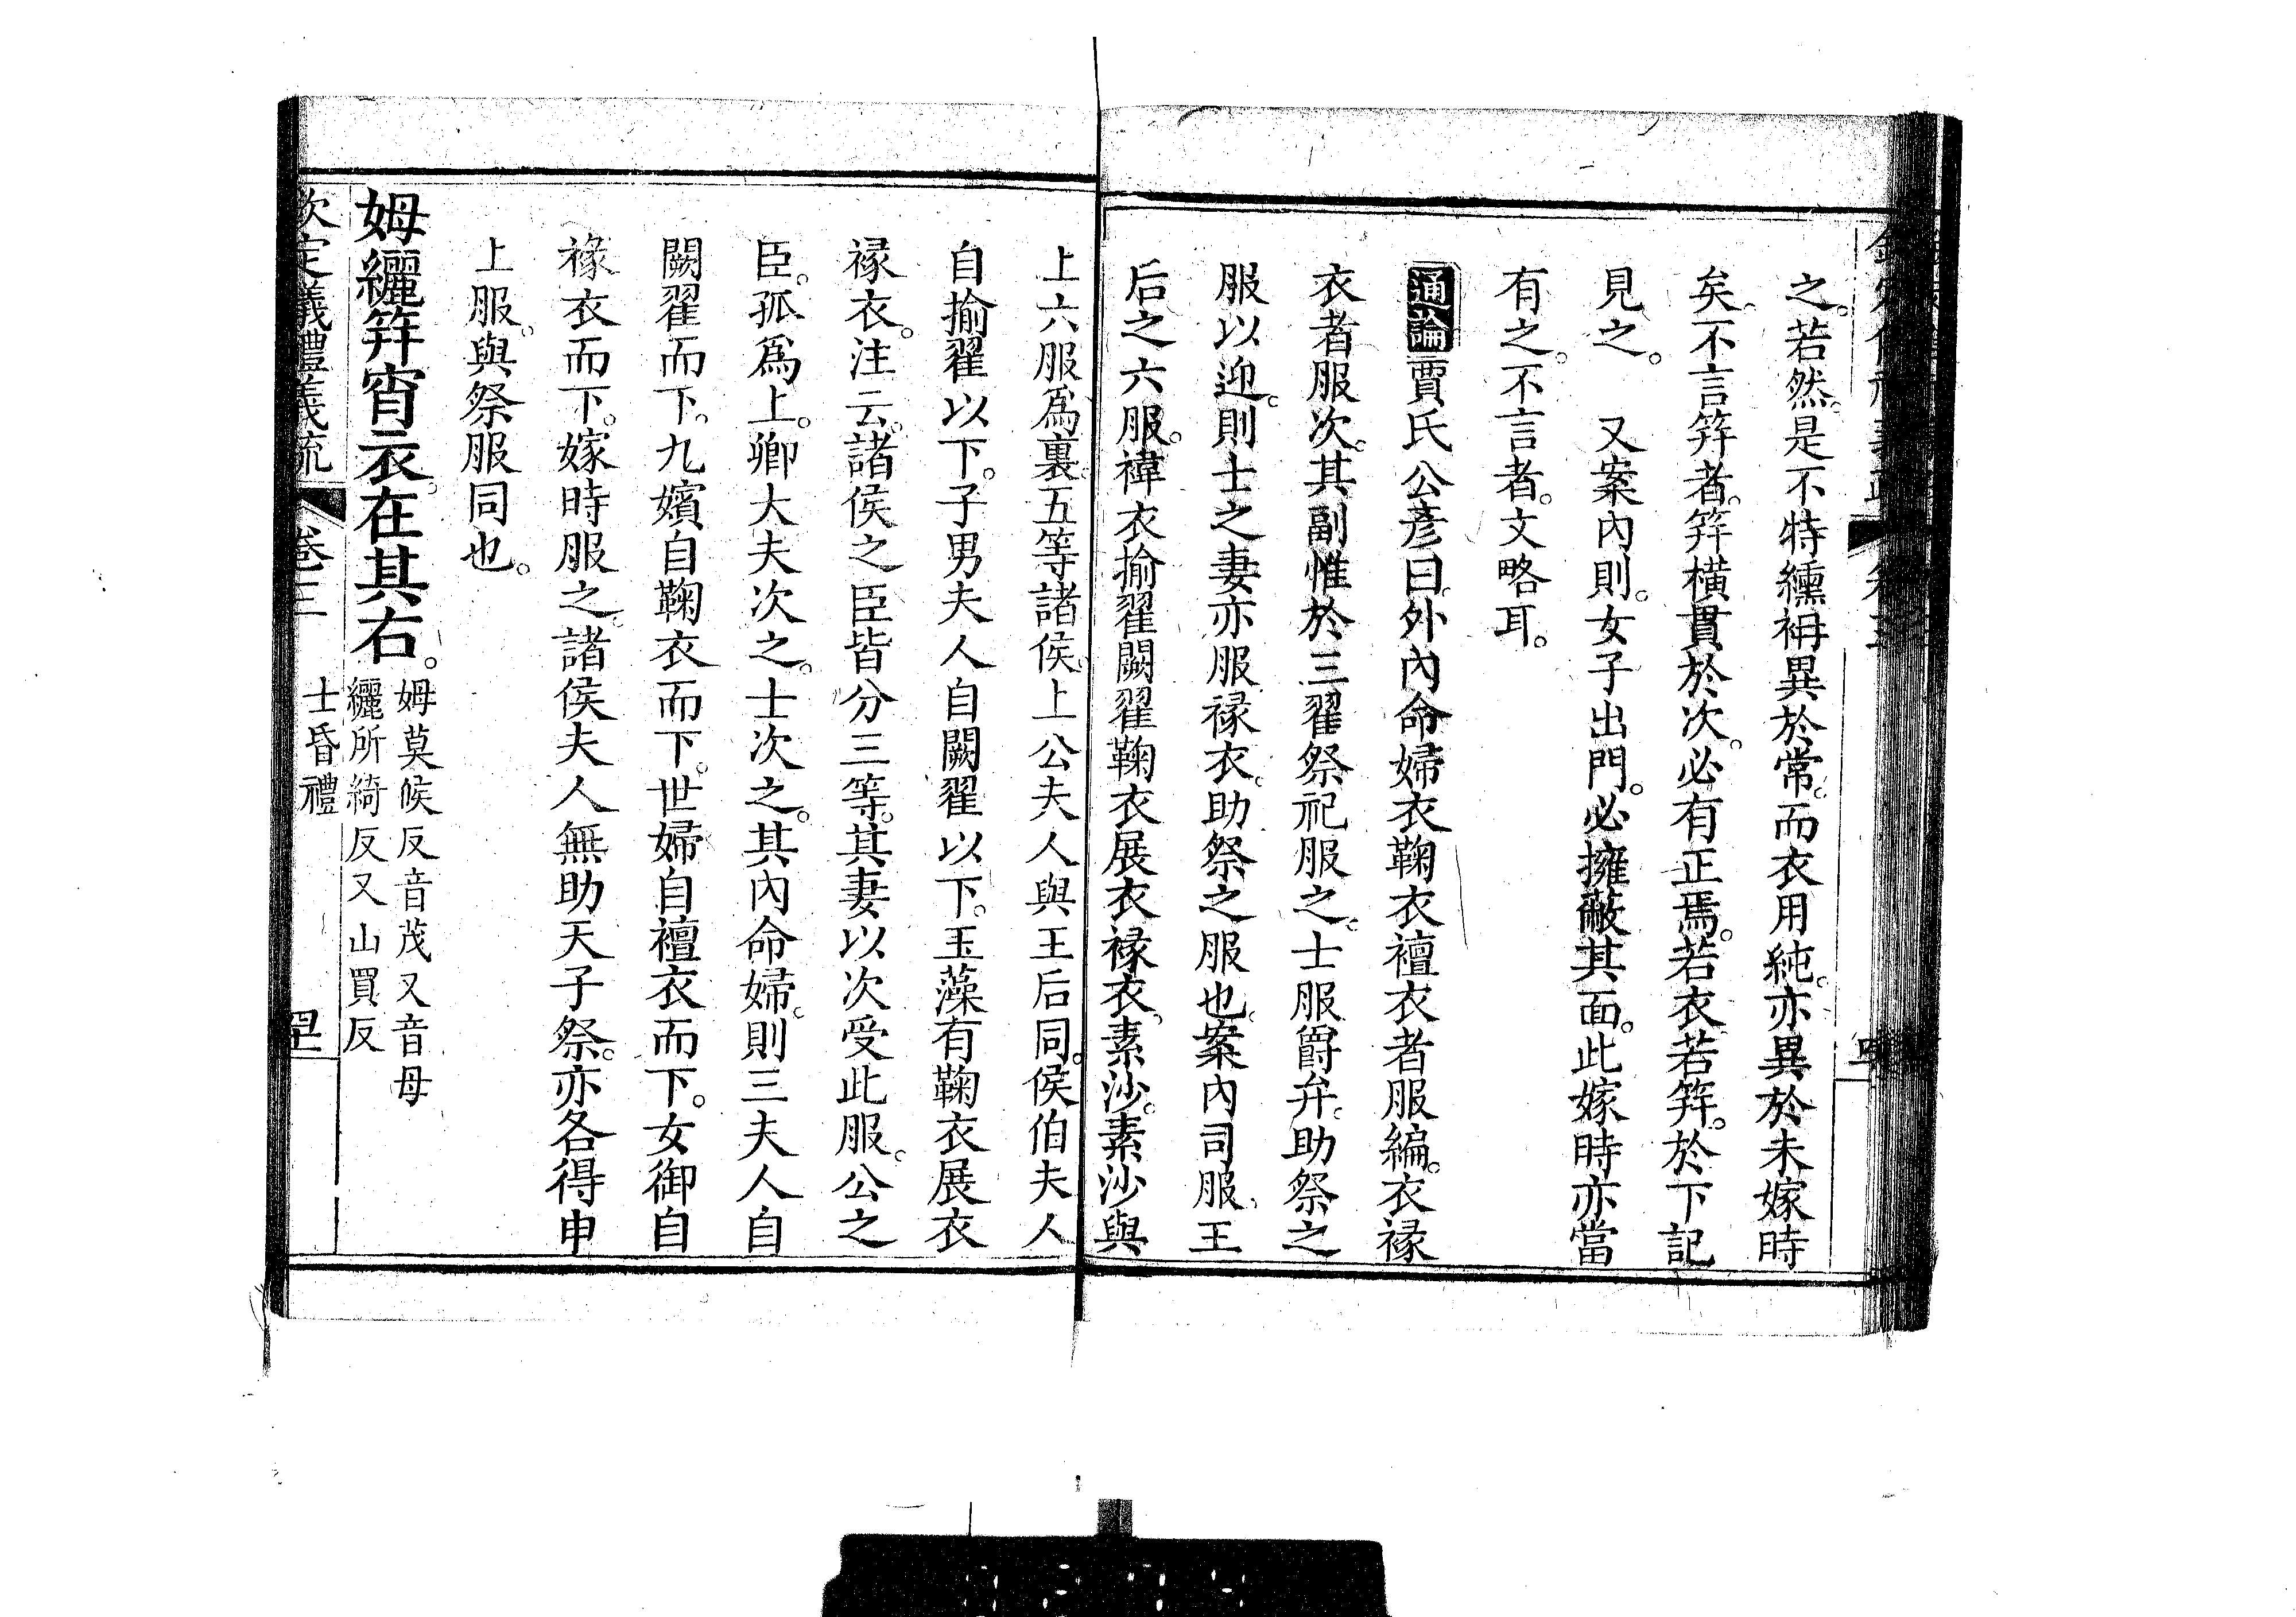 之。若然。是不特纁袡異於常。而衣用純。亦異於未嫁時
矣。不言笄者。笄橫貫於次。必有正焉。若衣若笄。於下記
見之。 又案內則。女子出門。必擁蔽其面。此嫁時亦當
有之。不言者。文略耳。
通論 賈氏公彥曰。外內命婦衣鞠衣襢衣者服編。衣褖
衣者服次。其副惟於三翟祭祀服之。士服爵弁。助祭之
服以迎。則士之妻亦服褖衣。助祭之服也。案內司服。王
后之六服。褘衣揄翟闕翟鞠衣展衣褖衣。素沙。素沙與
上六服爲裏。五等諸侯。上公夫人與王后同。侯伯夫人
自揄翟以下。子男夫人自闕翟以下。玉藻有鞠衣展衣
褖衣。注云。諸侯之臣皆分三等。其妻以次受此服。公之
臣。孤爲上。卿大夫次之。士次之。其內命婦。則三夫人自
闕翟而下。九嬪自鞠衣而下。世婦自襢衣而下。女御自
褖衣而下。嫁時服之。諸侯夫人無助天子祭。亦各得申
上服。與祭服同也。
姆纚笄宵衣。在其右。
姆莫候反音茂又音母
纚所綺反又山買反
欽定儀禮義疏 卷三 士昏禮